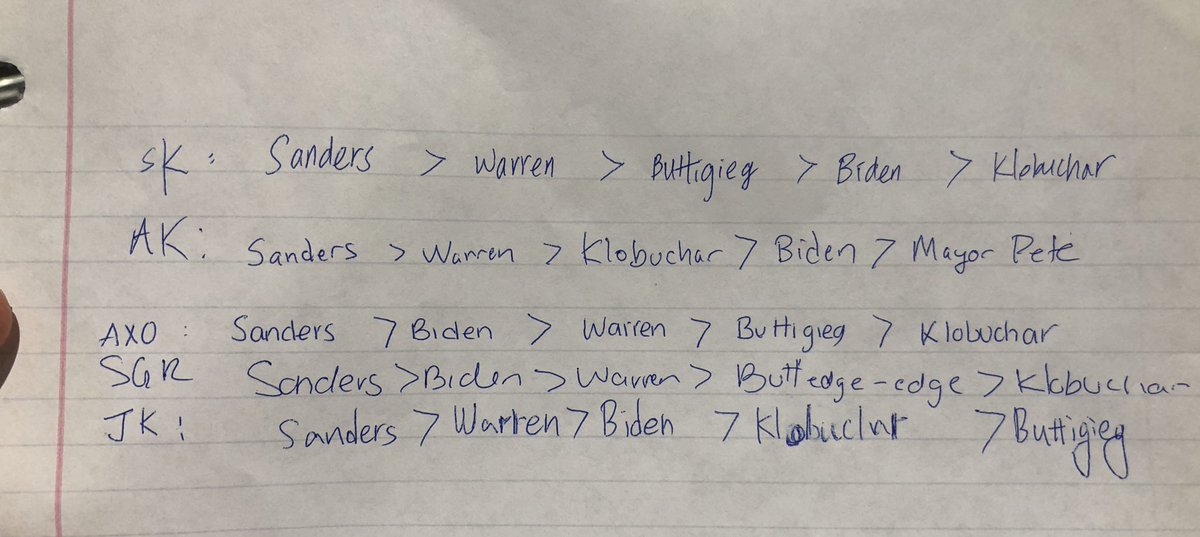 SK: Sanders > Warren > Buttigieg > Biden > Klobuchar
AK: Sanders > Warren > Klobuchar > Biden > Mayor Pete
AXO: Sanders > Biden > Warren > Buttigieg > Klobuchar
SGR Sanders > Biden > Warren > Buttedge-edge > Klobuchar
JK: Sanders > Warren > Biden > Klobuchar > Buttigieg